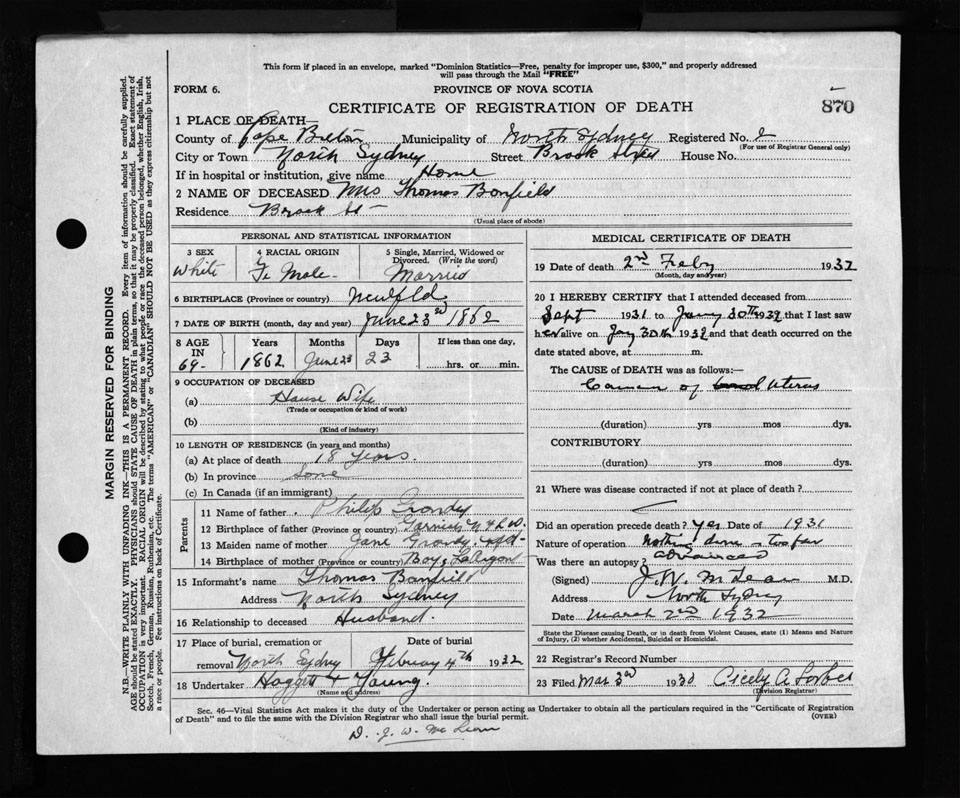 This form if placed in an envelope, marked "Dominion Statistics—Free, penalty for improper use, $300," and properly addressed
will pass through the Mail "FREE"
FORM 6.
PROVINCE OF NOVA SCOTIA
CERTIFICATE OF REGISTRATION OF DEATH
870
1 PLACE OF DEATH—
County of Cape Breton Municipality of North Sydney Registered No. 2
(For use of Registrar General only)
City or Town North Sydney Street Brook Street House No.
If in hospital or institution, give name Home
2 NAME OF DECEASED Mrs Thomas Bonfield
Residence Brook St —
(Usual place of abode)
PERSONAL AND STATISTICAL INFORMATION
3 SEX White
4 RACIAL ORIGIN Fe Male
5 Single, Married, Widowed or Divorced. (Write the word) Married
6 BIRTHPLACE (Province or country) Neufld
7 DATE OF BIRTH (month, day and year) June 23rd 1862
8 AGE IN 69- Years 1862 Months June 23 Days 23 If less than one day, hrs. or min.
9 OCCUPATION OF DECEASED
(a) House Wife
(Trade or occupation or kind of work)
(b)
(Kind of industry)
10 LENGTH OF RESIDENCE (in years and months)
(a) At place of death 18 Years.
(b) In province Same
(c) In Canada (if an immigrant)
Parents
11 Name of father Philip Grandy
12 Birthplace of father (Province or country) Garnish
13 Maiden name of mother Jane Grandy
14 Birthplace of mother (Province or country) Bay
15 Informant's name Thomas Banfield
Address North Sydney
16 Relationship to deceased Husband.
17 Place of burial, cremation or removal North Sydney Date of burial February 4th 1932
18 Undertaker Haggett & Young.
(Name and address)
MEDICAL CERTIFICATE OF DEATH
19 Date of death 2nd Feby 1932
(Month, day and year)
20 I HEREBY CERTIFY that I attended deceased from
Sept 1931 to Jany 30th 1932 that I last saw
her alive on Jay 30th 1932 and that death occurred on the
date stated above, at m.
The CAUSE of DEATH was as follows:
Cancer of Uterus
(duration) yrs mos dys.
CONTRIBUTORY
(duration) yrs mos dys.
21 Where was disease contracted if not at place of death?
Did an operation precede death? yes Date of 1931
Nature of operation Nothing done — too far
advanced
Was there an autopsy?
(Signed) J. W. McLean M.D.
Address North Sydney
Date March 2nd 1932
State the Disease causing Death, or in death from Violent Causes, state (1) Means and Nature
of Injury, (2) whether Accidental, Suicidal or Homicidal.
22 Registrar's Record Number
23 Filed Mar 3rd 1930 Cicely A
(Division Registrar)
Sec. 46—Vital Statistics Act makes it the duty of the Undertaker or person acting as Undertaker to obtain all the particulars required in the "Certificate of Registration
of Death" and to file the same with the Division Registrar who shall issue the burial permit.
(OVER)
D. J. W. McLean
MARGIN RESERVED FOR BINDING
N.B.—WRITE PLAINLY WITH UNFADING INK—THIS IS A PERMANENT RECORD. Every item of information should be carefully supplied.
AGE should be stated EXACTLY. PHYSICIANS should STATE CAUSE OF DEATH in plain terms, so that it may be properly classified. Exact statement of
OCCUPATION is very important. RACIAL ORIGIN will be described by stating to what people or race the deceased person belonged, whether English, Irish,
Scotch, French, German, Russian, Ruthenian, etc. The terms "AMERICAN" or "CANADIAN" SHOULD NOT BE USED as they express citizenship but not
a race or people. See instructions on back of Certificate.